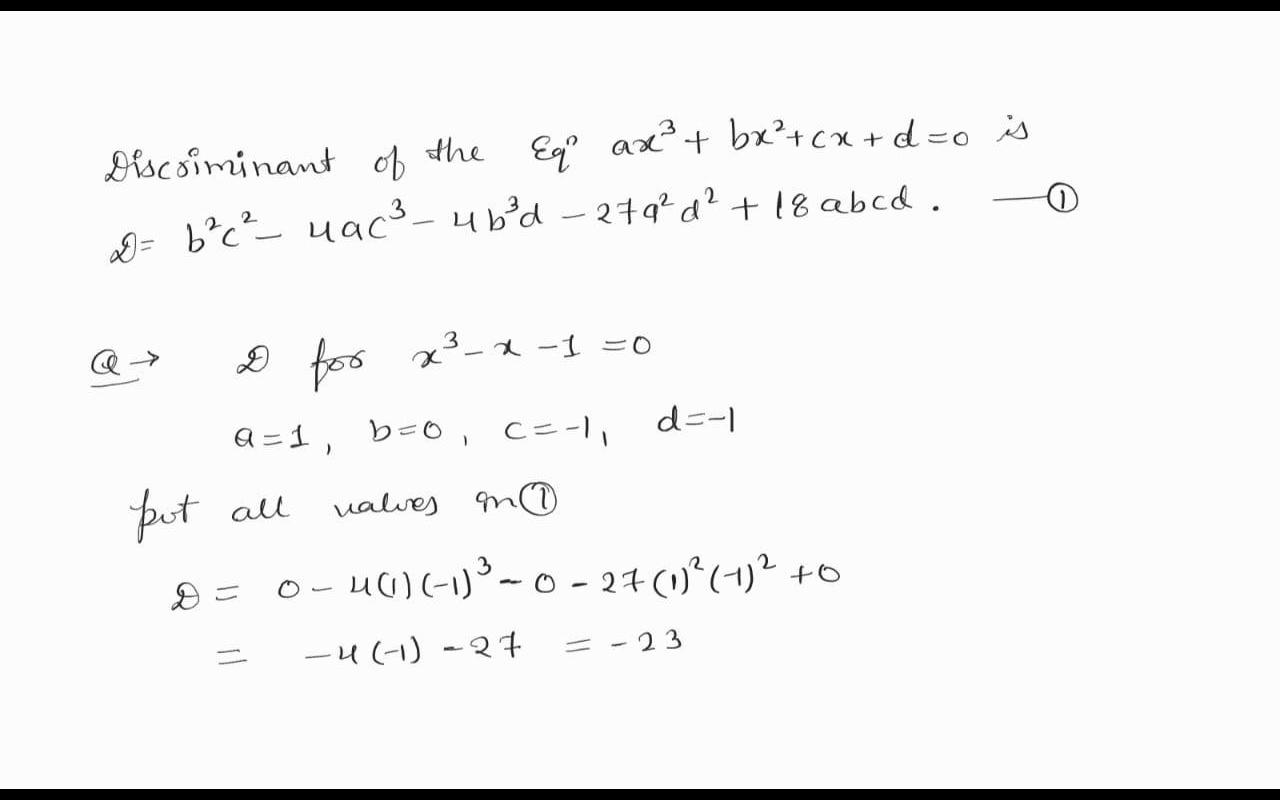 Discriminant of the Eqⁿ ax³ + bx² + cx + d = 0 is
D = b²c² – 4ac³ – 4b³d – 27a²d² + 18abcd. — ①
Q → D for x³ – x – 1 = 0
a = 1, b = 0, c = -1, d = -1
put all values in ①
D = 0 – 4(1)(-1)³ – 0 – 27(1)²(-1)² + 0
= –4(-1) – 27 = -23